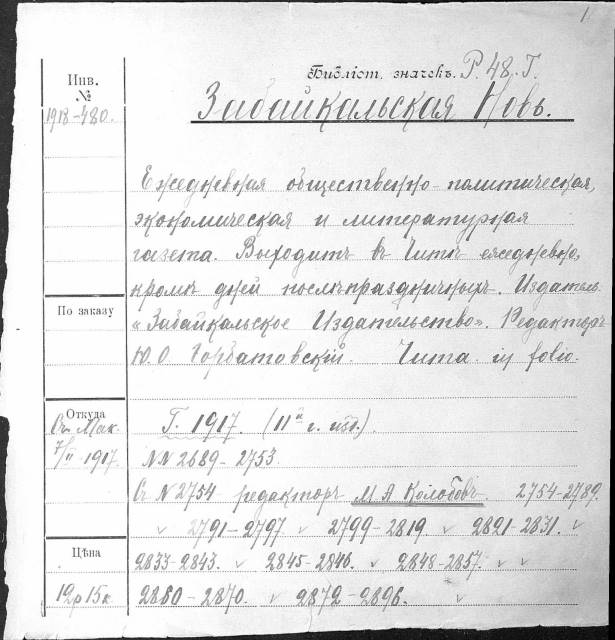 1.
Библіот. значекъ. Р. 48. Г.
Инв.
№
1918-480.
Забайкальская Новь.
Ежедневная общественно-политическая,
экономическая и литературная
газета. Выходитъ въ Читѣ ежедневно,
кромѣ дней послѣпраздничныхъ. Издатель
По заказу
«Забайкальское Издательство». Редакторъ
Ю. О. Горбатовскій. Чита. in folio.
Откуда
Г. 1917. (11й г. изд.).
7/II 1917.
NN 2689-2753.
Съ N 2754 редакторъ М А Колобовъ. 2754-2789.
2791-2797. 2799-2819. 2821-2831.
Цѣна
2833-2843. 2845-2846. 2848-2857.
12р 15к
2860-2870. 2872-2896.